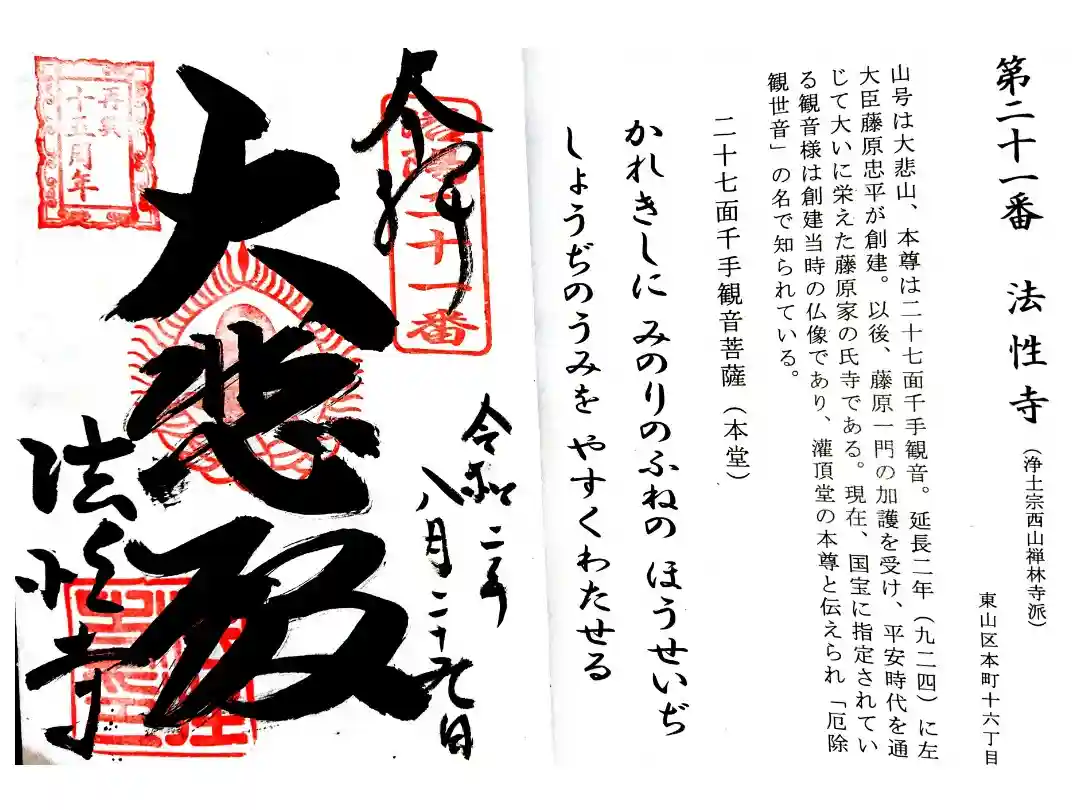 第二十一番 法性寺(浄土宗西山禅林寺派)
東山区本町十六丁目
山号は大悲山、本尊は二十七面千手観音。延長二年(九二四)に左
大臣藤原忠平が創建。以後、藤原一門の加護を受け、平安時代を通
じて大いに栄えた藤原家の氏寺である。現在、国宝に指定されてい
る観音様は創建当時の仏像であり、灌頂堂の本尊と伝えられ「厄除
観世音」の名で知られている。
二十七面千手観音菩薩(本堂)
かれきしに みのりのふねの ほうせいぢ
しょうぢのうみを やすくわたせる
奉拝
洛陽二十一番
令和二年
八月二十九日
大悲殿
法性寺
再興
十五周年